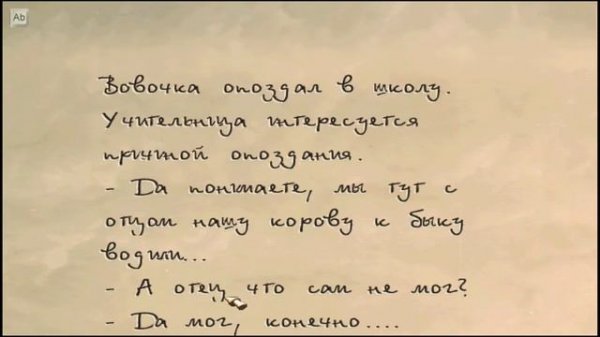 Ab
Вовочка опоздал в школу.
Учительница интересуется
причиной опоздания.
- Да понимаете, мы тут с
отцом нашу корову к быку
водили...
- А отец что сам не мог?
- Да мог, конечно....